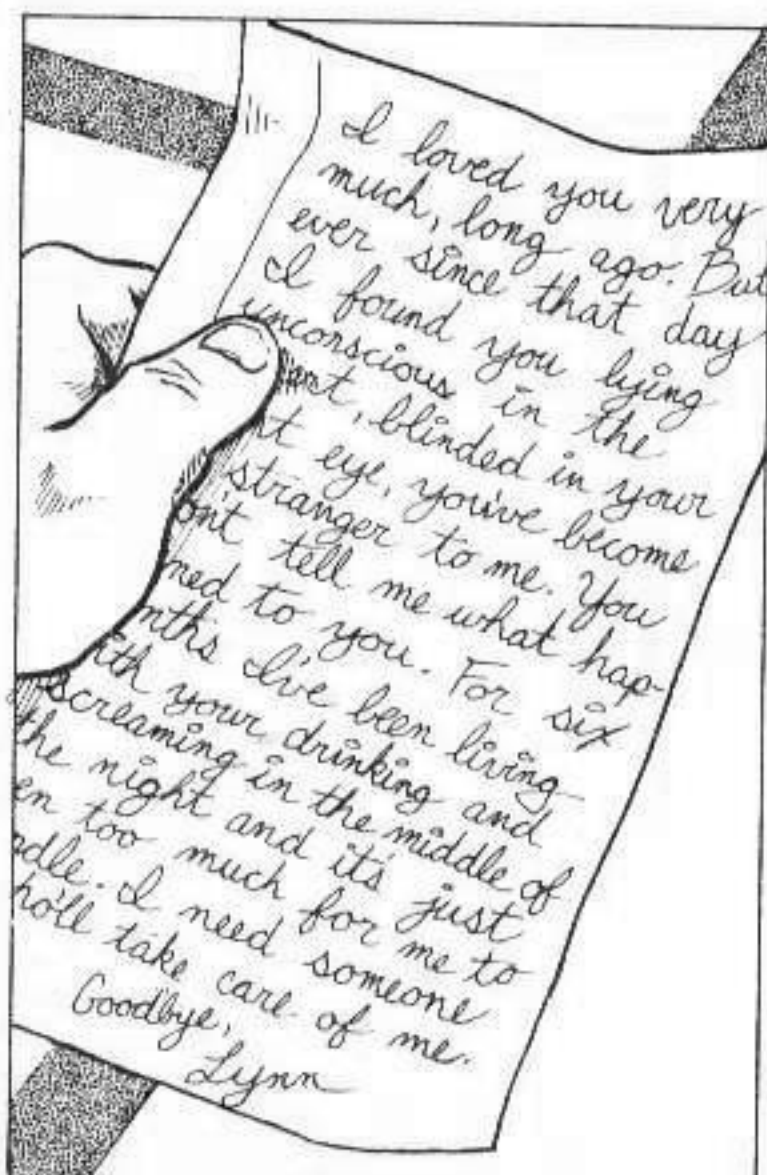 I loved you very
much, long ago. But
ever since that day
I found you lying
unconscious in the
blinded in your
eye, you've become
stranger to me. You
tell me what hap-
to you. For six
I've been living
your drinking and
screaming in the middle of
the night and it's just
too much for me to
I need someone
take care of me.
Goodbye,
Lynn